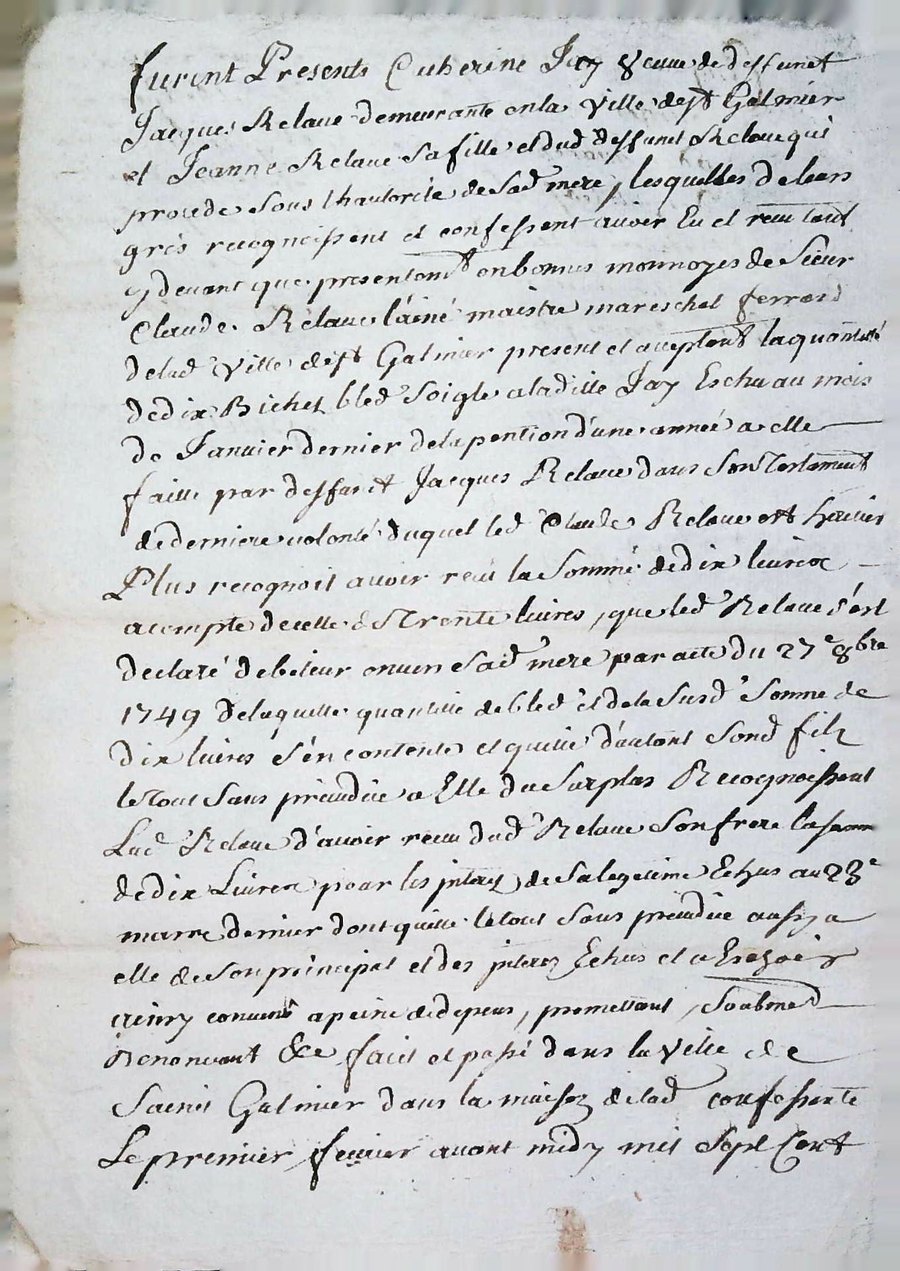 furent Presents Catherine Jay veuve de deffunct
Jacques Relave demeurante en la ville de st Galmier
et Jeanne Relave sa fille et dud deffunct Relave qui
procede sous l'hautorité de sad mere, lesquelles de leurs
grés recognoissent et confessent avoir Eu et receu tant
cy devant que presentemt en bonnes monnoyes de Sieur
Claude Relave l'ainé maistre mareschal ferrand
de lad ville de st Galmier present et acceptant la quantité
de dix Bichet bled Soigle a ladille Jay Eschu au mois
de Janvier dernier de la pention d'une année a elle
faitte par deffunct Jacques Relave dans Son Testament
de derniere volonté duquel led Claude Relave est heritier
Plus recognoit avoir receu la Somme de dix livres
acompte de celle de Trente livres, que led Relave s'est
declaré debiteur envers sad mere par acte du 27e 8bre
1749 de laquelle quantité de bled et de la Susd Somme de
dix livres s'en contente et quitte d'autant Sond filz
le tout Sans prejudice a Elle du Surplus Recognoissant
Lad Relave d'avoir receu dud Relave Son frere la somme
de dix Livres pour les jnterez de Sa legitime Echus au 23e
mars dernier dont quitte le tout Sans prejudice aussy a
elle de Son principal et des jnterez Echus et a Escheoir
ainsy convenu a peine de depens, promettant, Soubmet
Renoncant &ce fait et passé dans la ville de
Saint Galmier dans la maison de lad confessante
Le premier fevrier avant midy mil Sept Cent